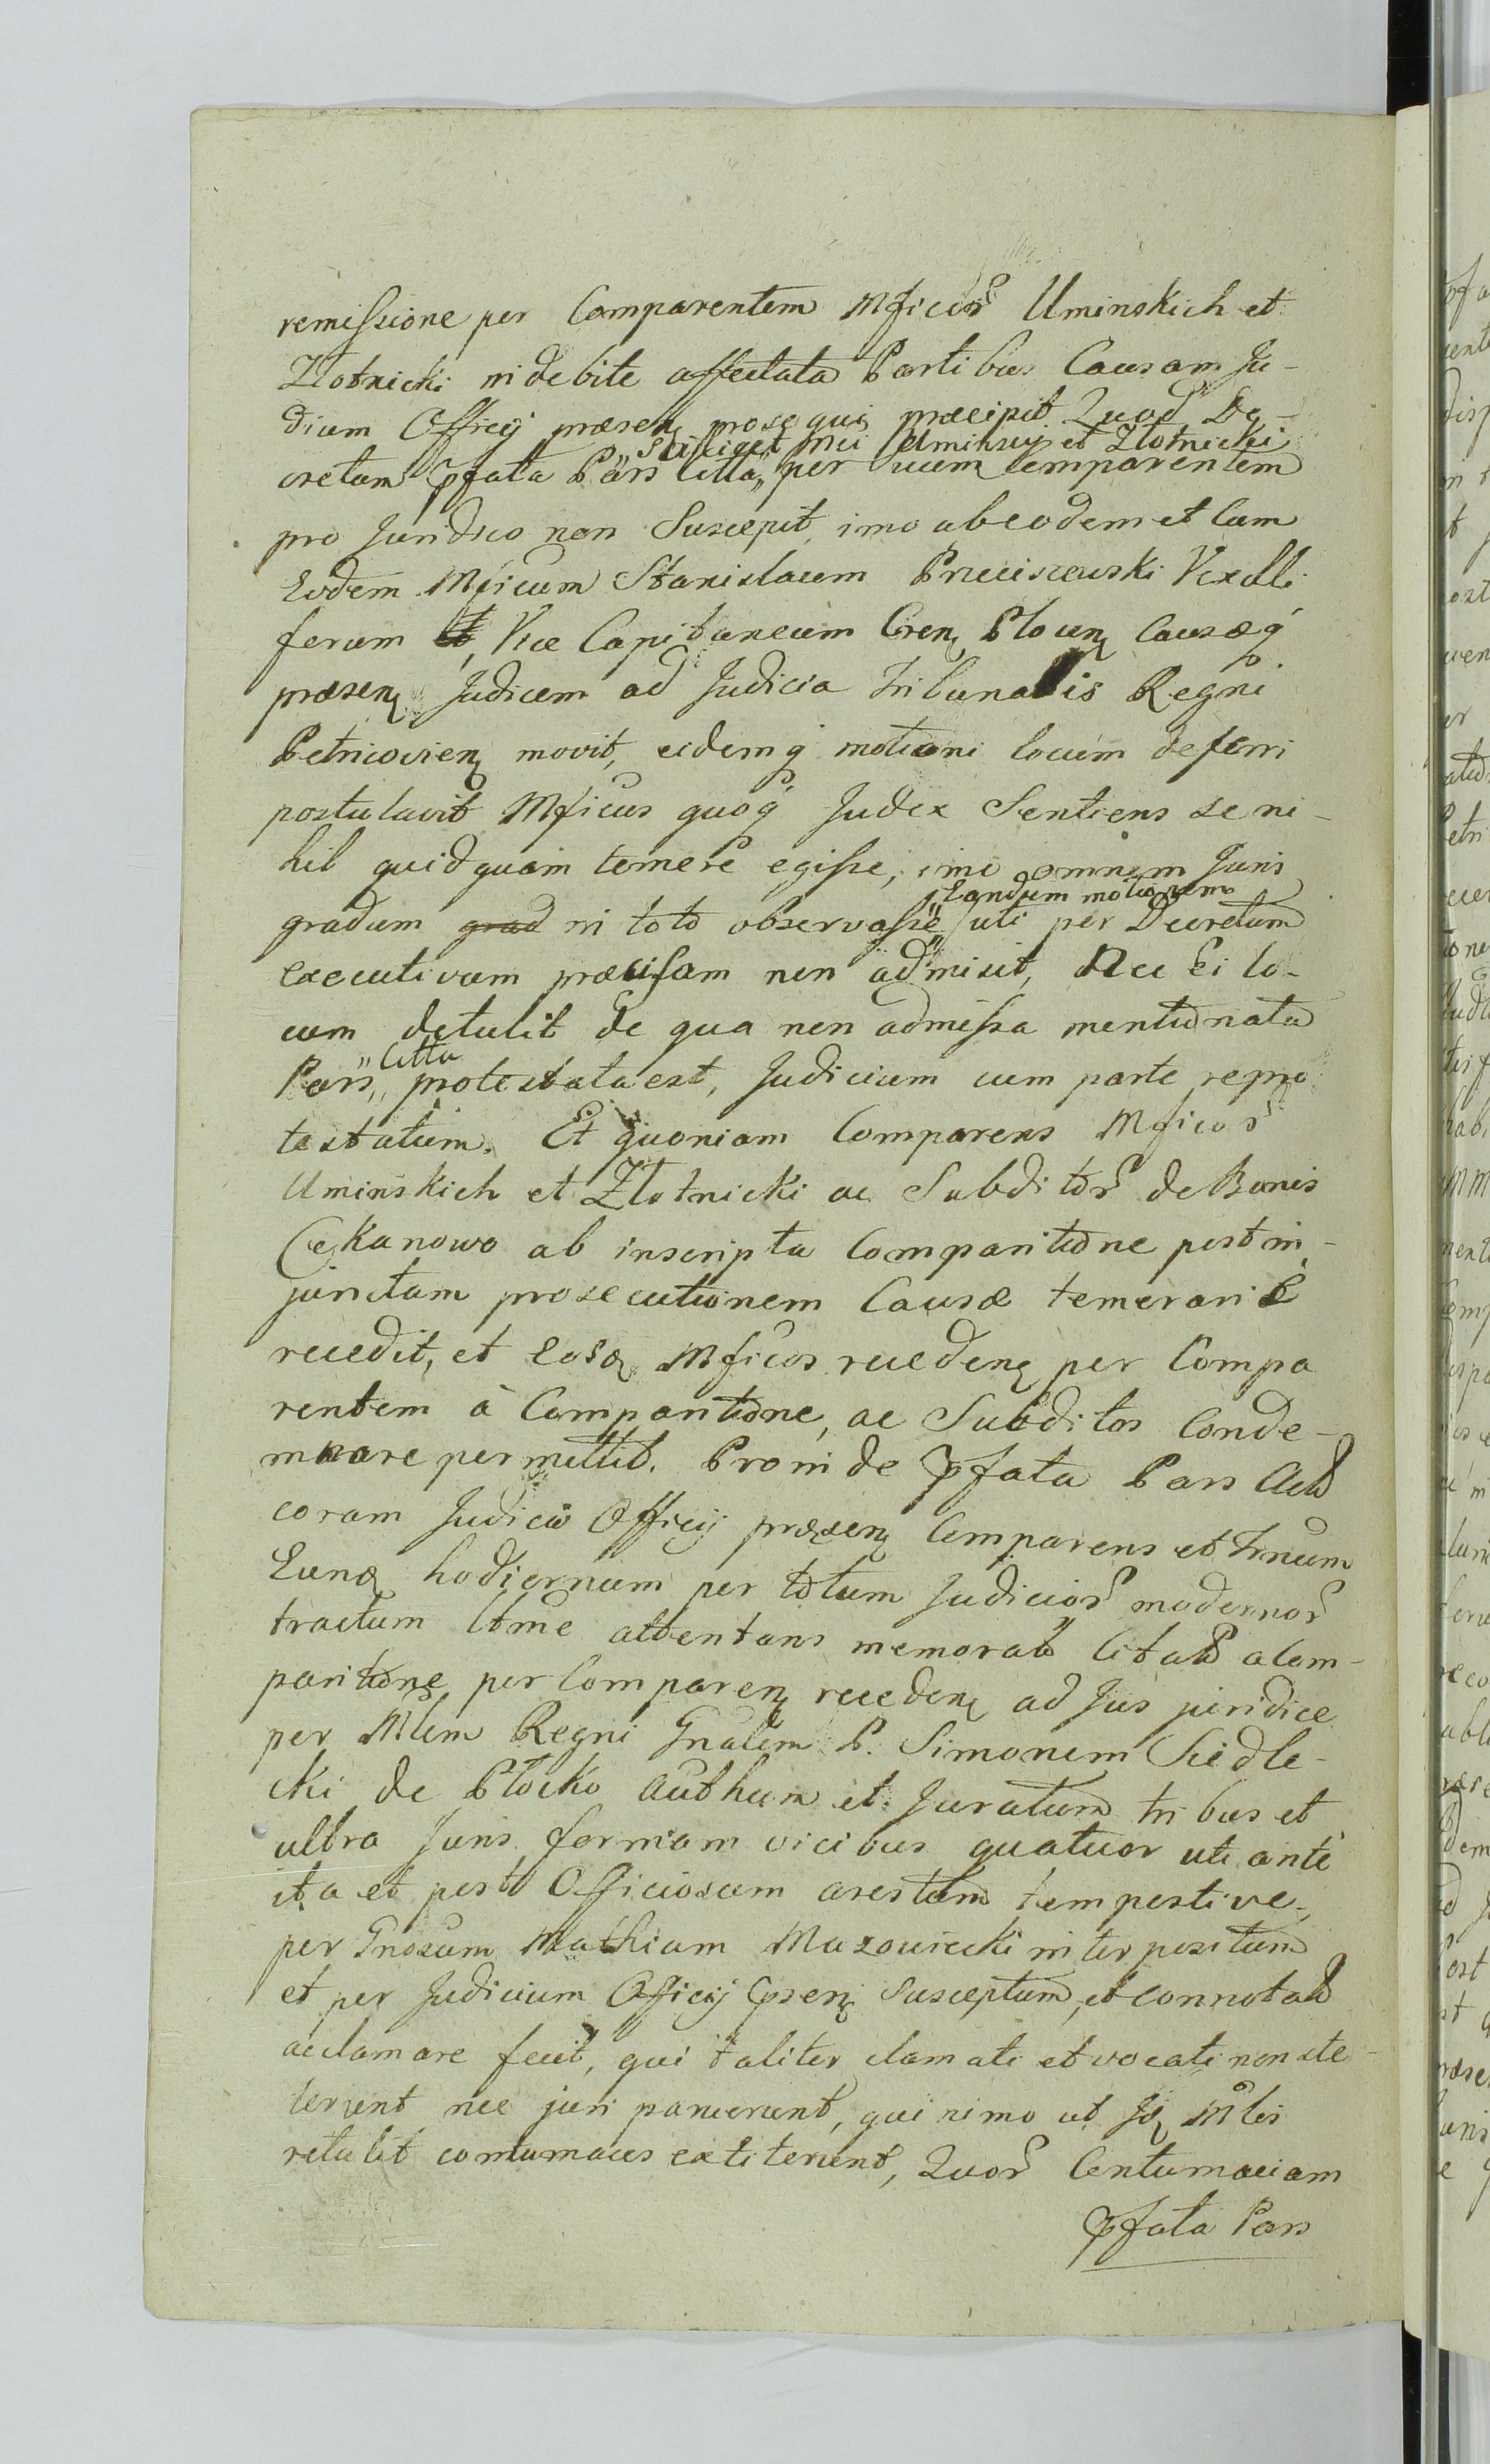 remissione per Comparentem Mficor Uminskich et
Złotnicki indebite affectata Partibus Causam Ju-
dicum Officij præsen prosequi præcipit Quod De-
"Scilicet Mci Uminscij et Złotnicki
cretum Pfata Pars Citta" per suum Comparentem
pro Juridico non Suscepit, imo ab eodem et Cum
Eodem Mficum Stanislaum Przeciszewski Vexilli
ferum et, Vice Capitaneum Gren Plocen Causæq
præsen Judicem ad Judicia Tribunalis Regni
Petricovien movit, eidemq motioni locum deferri
postulavit Mficus quoq Judex Sentiens se ni-
hil quidquam temere egisse, imo omnem Juris
"Eandem motionem
gradum grad in toto observasse" uti per Decretum
executivum præcisam non admisit, Nec Ei lo-
cum detulit de qua non admissa mentionata
"Citta
Pars" protestata est, Judicium cum parte repro
testatum. Et quoniam Comparens Mficor
Uminskich et Złotnicki ac Subditor de Bonis
Cekanowo ab inscripta Comparitione post in-
junctam prosecutionem Causæ temerarie
recedit, et Eosd Mficos receden per Compa
rentem à Comparitione, ac Subditos Conde-
mnare permittit. Proinde Pfata Pars Act
coram Judicio Officij præsen Comparens et Trnum
Eund hodiernum per totum Judicior modernor
tractum Ltme attentans memorat Citat a Com-
paritione per Comparen receden ad Jus juridice
per Mlem Regni Gnalem P. Simonem Siedle-
cki de Płocko Authum et Juratum tribus et
ultra Juris formam vicibus quatuor uti ante
ita et post Officiosam arestam tempestive
per Gnosum Mathiam Mazowiecki interpositum
et per Judicium Officij Psen Susceptum, et connotat
acclamare fecit, qui taliter clamati et vocati non ste-
terunt nec juri paruerunt, quinimo ut Jd Mles
retulit contumaces extiterunt, Quor Contumaciam
Pfata Pars